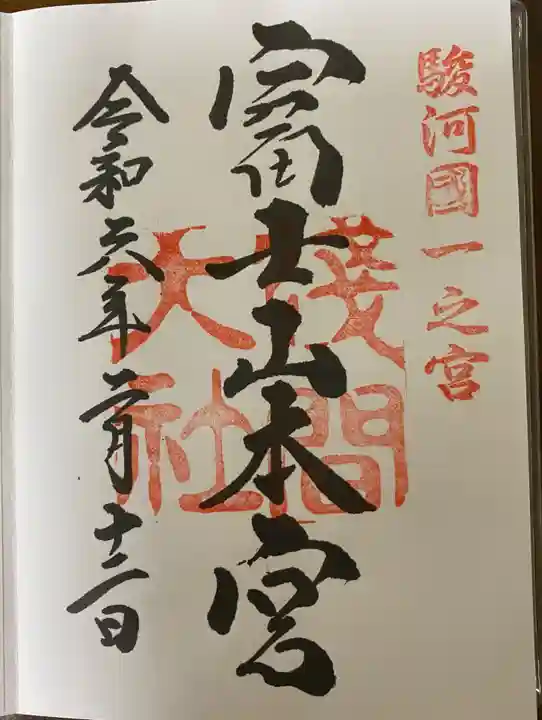 駿河國一之宮
富士山本宮
淺間大社
令和六年二月十二日